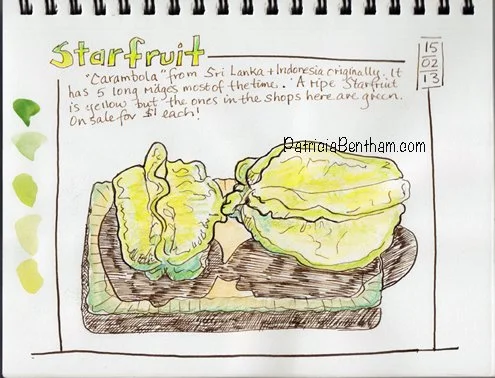 Starfruit
15
02
13
"Carambola" from Sri Lanka + Indonesia originally. It
has 5 long ridges most of the time.. A ripe Starfruit
is yellow but the ones in the shops here are green.
On sale for $1 each!
PatriciaBentham.com